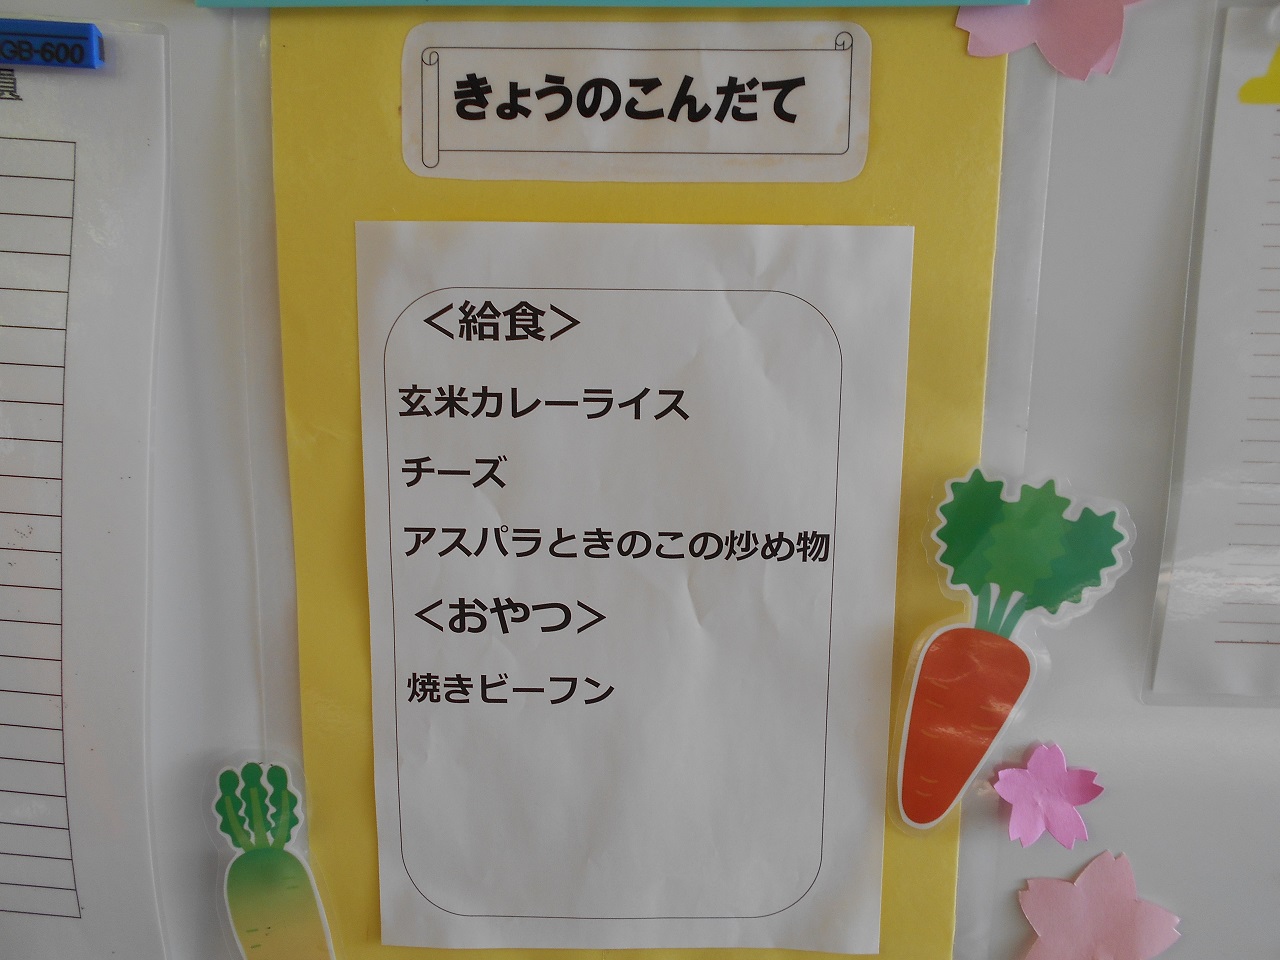 GB-600
員
きょうのこんだて
＜給食＞
玄米カレーライス
チーズ
アスパラときのこの炒め物
＜おやつ＞
焼きビーフン